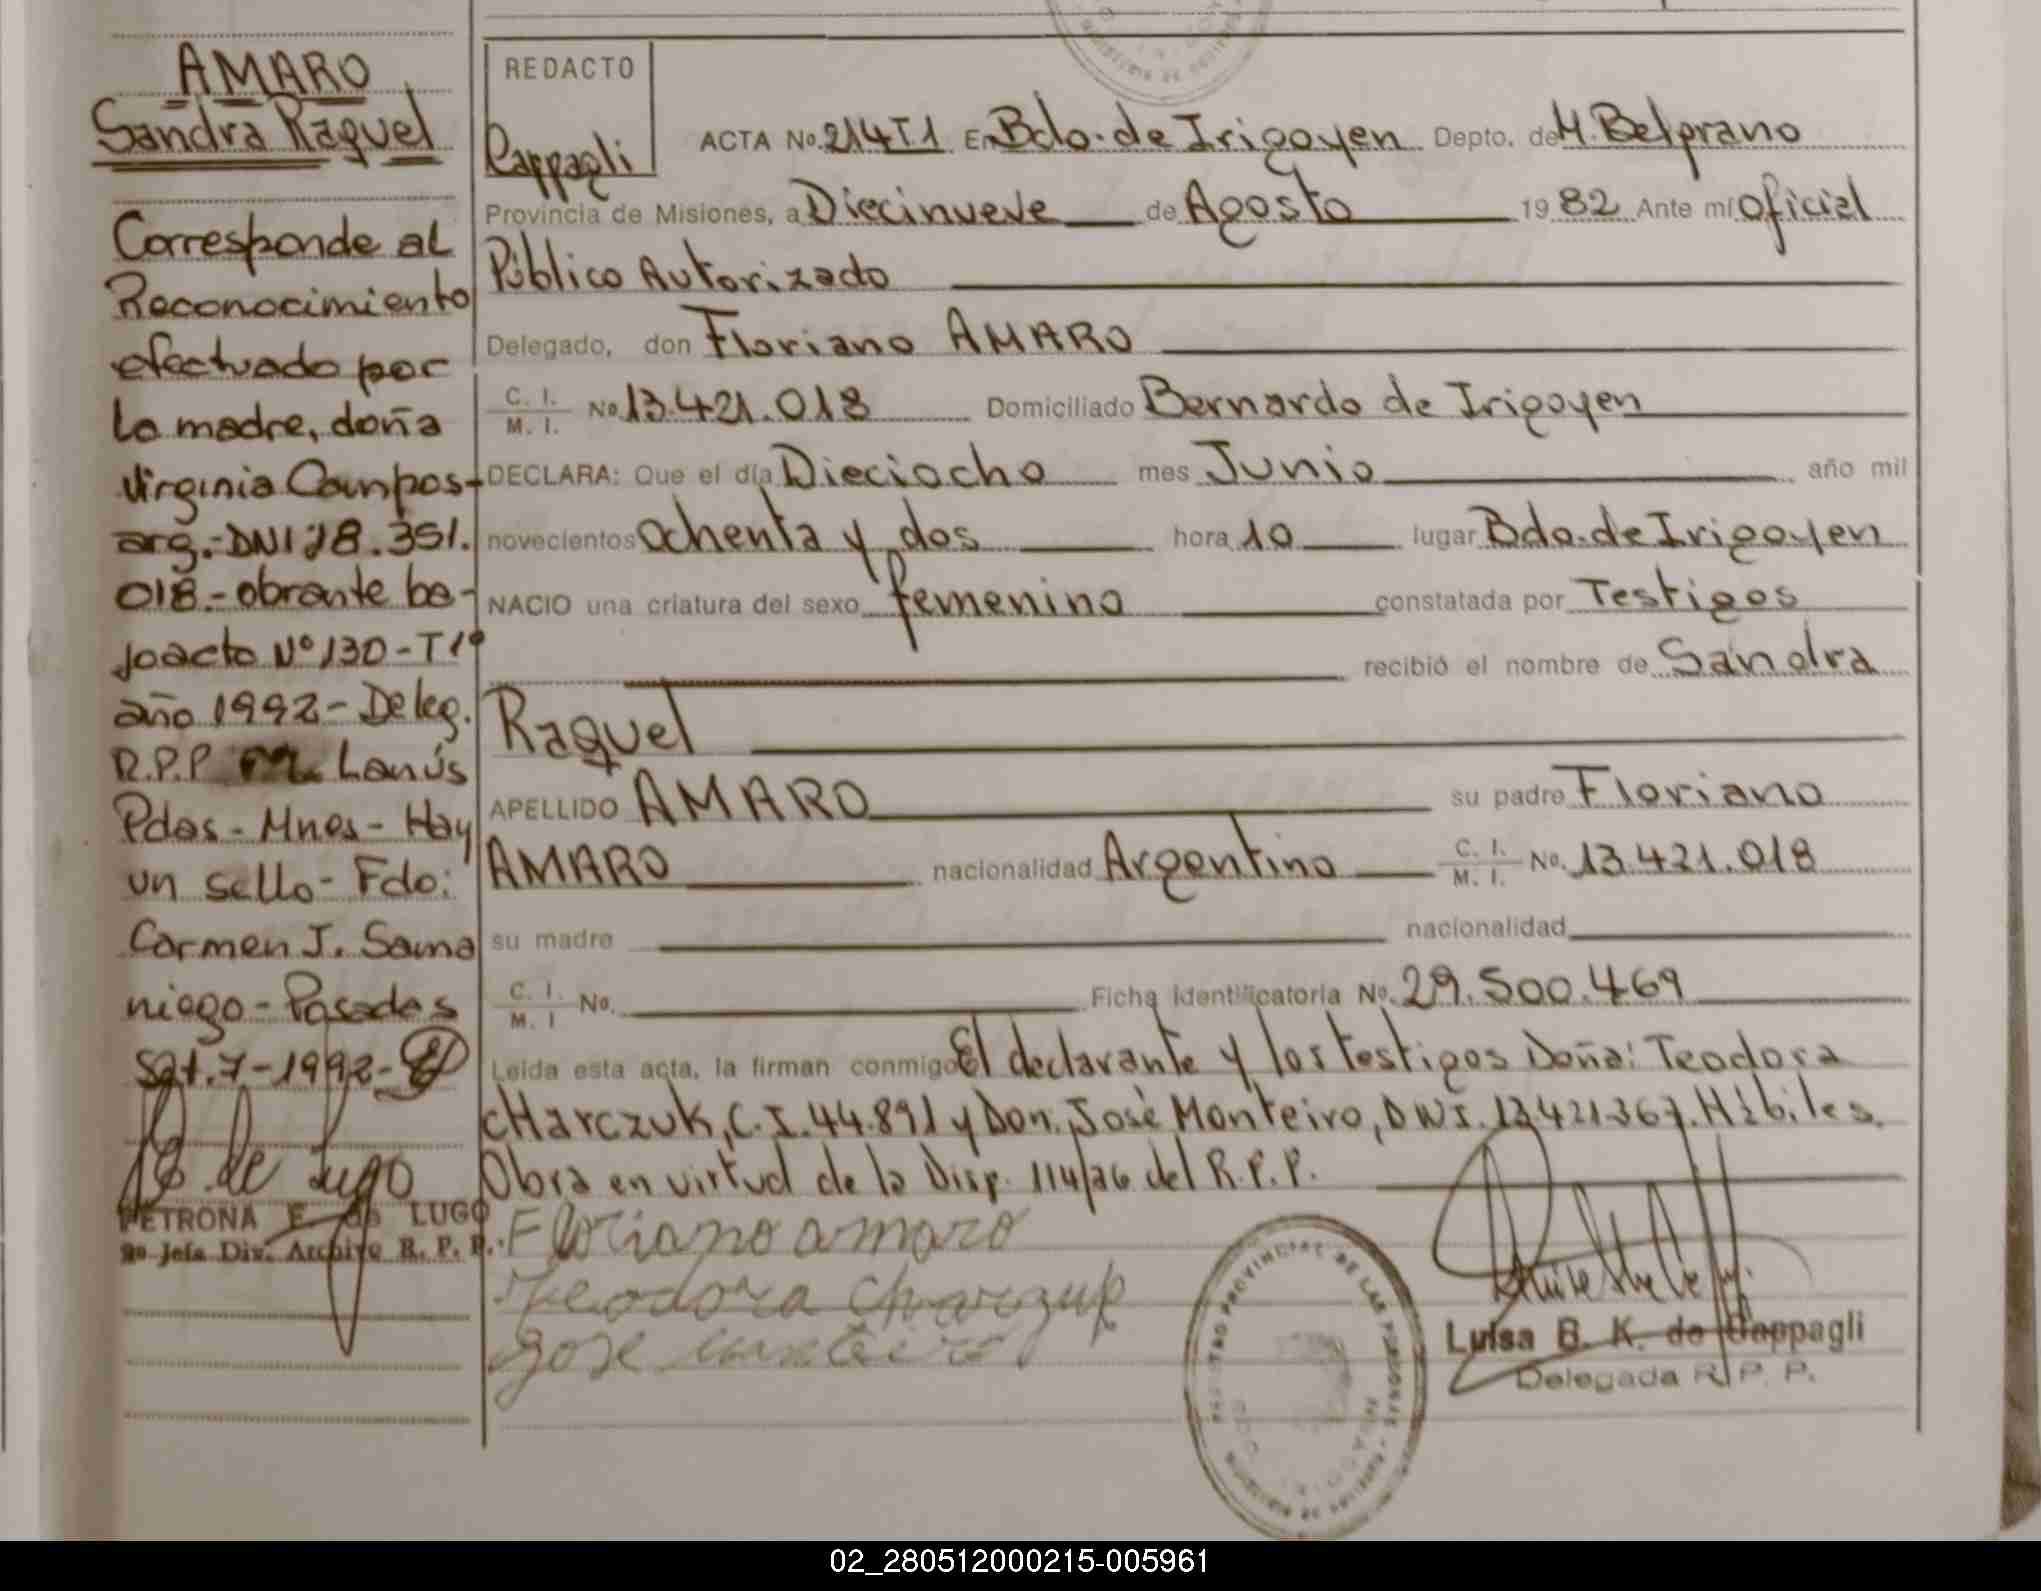 AMARO
Sandra Raquel
Corresponde al
Reconocimiento
efectuado por
la madre, doña
Virginia Campos-
arg.-DNI 18.351.
018.- obrante ba-
jo acta Nº 130 - T1º
año 1992 - Deleg.
R.P.P. Lanús
Pdas - Mnes - Hay
un sello - Fdo:
Carmen J. Sama
niego - Posadas
7-1992-
PETRONA E. de LUGO
2º Jefa Div. Archivo R. P. P.
REDACTO
Cappagli
ACTA No. 214 T1 En Bdo. de Irigoyen Depto. de M. Belgrano
Provincia de Misiones, a Diecinueve de Agosto 19 82 Ante mí oficial
Público Autorizado
Delegado, don Floriano AMARO
C. I. M. I. No. 13.421.018 Domiciliado Bernardo de Irigoyen
DECLARA: Que el día Dieciocho mes Junio año mil
novecientos ochenta y dos hora 10 lugar Bdo. de Irigoyen
NACIO una criatura del sexo femenino constatada por Testigos
recibió el nombre de Sandra
Raquel
APELLIDO AMARO su padre Floriano
AMARO nacionalidad Argentino C. I. M. I. No. 13.421.018
su madre nacionalidad
C. I. M. I No. Ficha identificatoria No. 29.500.469
Leida esta acta, la firman conmigo El declarante y los testigos Doña: Teodora
cHarczuk, C.I. 44.891 y Don. José Monteiro, DNI. 13.421.367. Hábiles.
Obra en virtud de la Disp. 114/ del R.P.P.
Floriano amaro
Teodora Charczuk
Jose monteiro
REGISTRO PROVINCIAL DE LAS PERSONAS
Luisa B. K. de Cappagli
Delegada R. P. P.
02_280512000215-005961